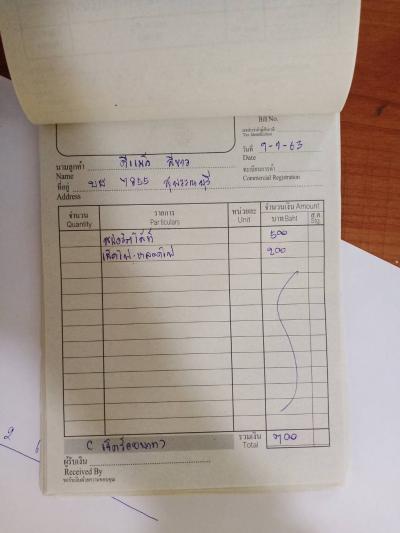 Bill No.
เลขประจำผู้เสียภาษี
Tax Identification
วันที่ 9-9-63
Date
นามลูกค้า ดีแม็ก สีขาว
Name
ทะเบียนการค้า
Commercial Registration
ที่อยู่ บษ 7855 สุพรรณบุรี
Address
จำนวน รายการ หน่วยละ จำนวนเงิน Amount
Quantity Particulars Unit บาท Baht ส.ต. Stg.
500
เช็คไฟ-หลอดไฟ 200
C เจ็ดร้อยบาท รวมเงิน 700
Total
ผู้รับเงิน
Received By
ขอรับเงินด้วยความขอบคุณ